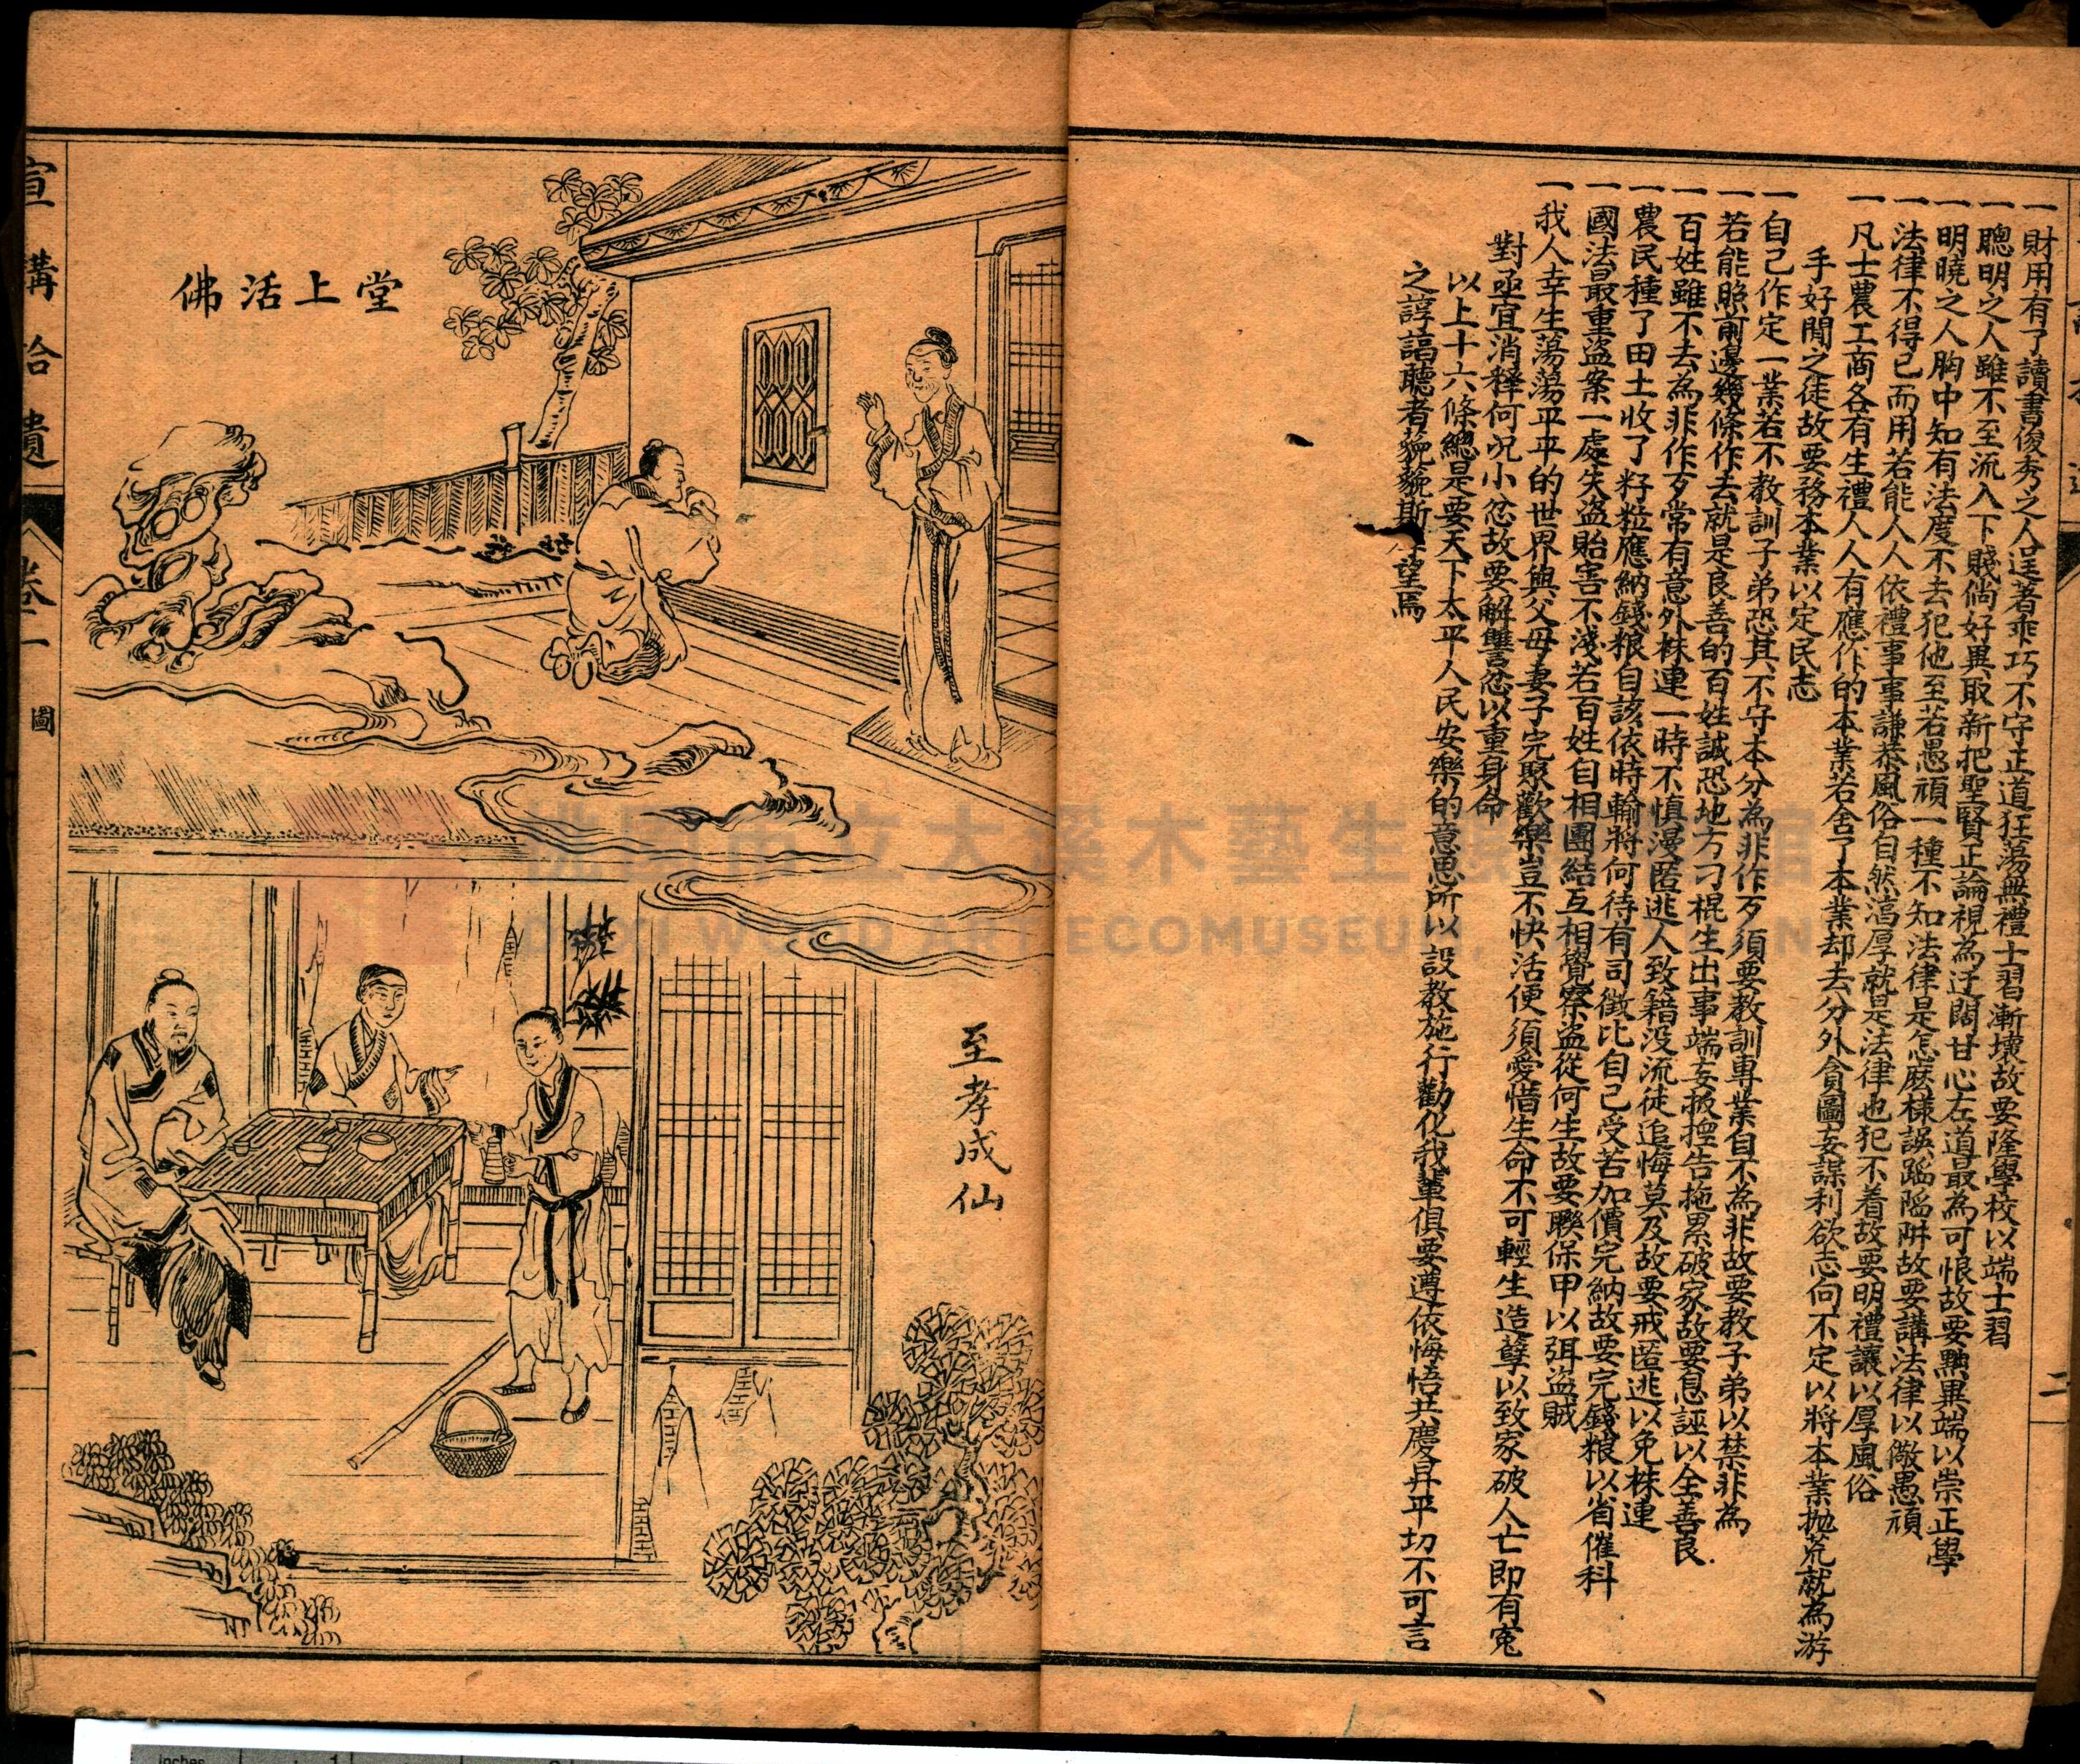 一財用有了讀書俊秀之人逞著乖巧不守正道狂蕩無禮士習漸壞故要隆學校以端士習
一聰明之人雖不至流入下賤倘好異取新把聖賢正論視為迂闊甘心左道最為可恨故要黜異端以崇正學
一明曉之人胸中知有法度不去犯他至若愚頑一種不知法律是怎麽樣誤蹈陷阱故要講法律以儆愚頑
一法律不得已而用若能人人依禮事事謙恭風俗自然湻厚就是法律也犯不着故要明禮讓以厚風俗
一凡士農工商各有生禮人人有應作的本業若舍了本業却去分外貪圖妄謀利欲志向不定以將本業抛荒就為游
手好閒之徒故要務本業以定民志
一自己作定一業若不教訓子弟恐其不守本分為非作歹須要教訓專業自不為非故要教子弟以禁非為
一若能照前邊幾條作去就是良善的百姓誠恐地方刁棍生出事端妄扳揑告拖累破家故要息誣以全善良
一百姓雖不去為非作歹常有意外株連一時不慎漫匿逃人致籍没流徒追悔莫及故要戒匿逃以免株連
一農民種了田土收了籽粒應納錢粮自該依時輸將何待有司徵比自己受苦加價完納故要完錢粮以省催科
一國法最重盗案一處失盗貽害不淺若百姓自相團結互相覺察盗從何生故要聯保甲以弭盗賊
一我人幸生蕩蕩平平的世界與父母妻子完聚歡樂豈不快活便須愛惜生命不可輕生造孽以致家破人亡即有寃
對亟宜消释何况小忿故要解讐忿以重身命
以上十六條總是要天下太平人民安樂的意思所以設教施行勸化我輩俱要遵依悔悟共慶昇平切不可言
之諄諄聽者藐藐斯 望焉
二
佛活上堂
至孝成仙
宣講拾遺
卷二
圖
一
桃園市立大溪木藝生態博物館
DAXI WOOD ART ECOMUSEUM, TAOYUAN
inches
1